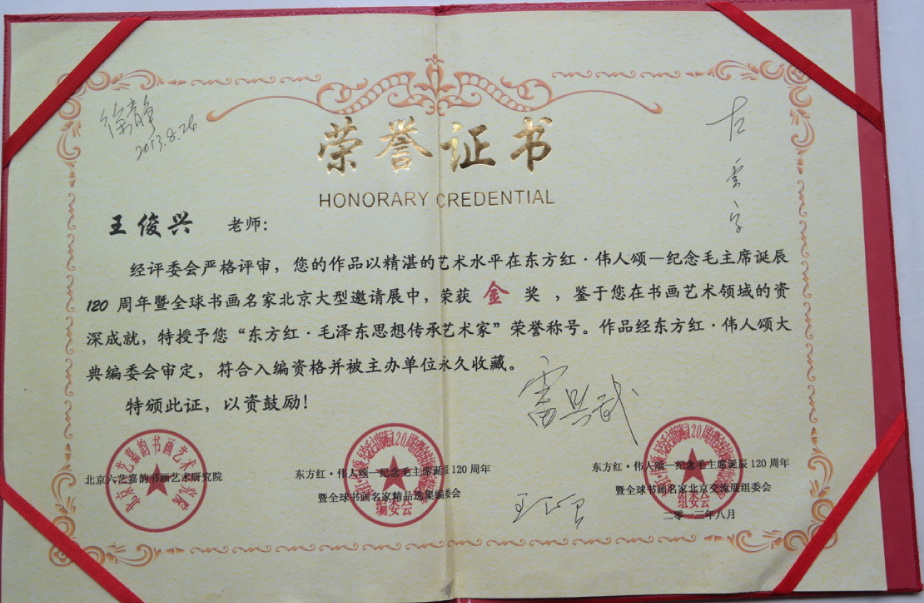 荣誉证书
HONORARY CREDENTIAL
2013.8.26
王俊兴 老师：
经评委会严格评审，您的作品以精湛的艺术水平在东方红·伟人颂—纪念毛主席诞辰
120周年暨全球书画名家北京大型邀请展中，荣获 金 奖，鉴于您在书画艺术领域的资
深成就，特授予您“东方红·毛泽东思想传承艺术家”荣誉称号。作品经东方红·伟人颂大
典编委会审定，符合入编资格并被主办单位永久收藏。
特颁此证，以资鼓励！
北京六艺嘉韵书画艺术研究院
东方红·伟人颂—纪念毛主席诞辰120周年
暨全球书画名家精品选集编委会
编委会
东方红·伟人颂—纪念毛主席诞辰120周年
暨全球书画名家北京交流展组委会
组委会
二零一三年八月